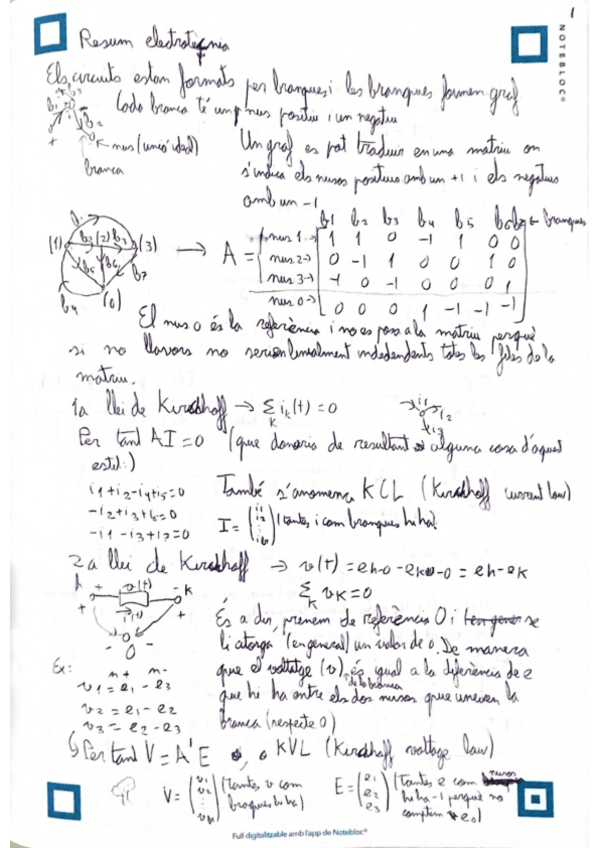 1
NOTEBLOC®
Resum electrotecnia
Els circuits estan formats per branques i les branques formen graf
Cada branca té un nus positiu i un negatiu
b1
b2
+
nus (unió ideal)
branca
Un graf es pot traduir en una matriu on
s'indica els nusos positius amb un +1 i els negatius
amb un -1
b1 b2 b3 b4 b5 b6 b7 ← branques
(1) b2 (2) b3 (3)
b5 b6 b7
b4 (0)
→ A =
nus 1 → 1 1 0 -1 1 0 0
nus 2 → 0 -1 1 0 0 1 0
nus 3 → -1 0 -1 0 0 0 1
nus 0 → 0 0 0 1 -1 -1 -1
El nus 0 és la referència i no es posa a la matriu perquè
si no llavors no serien linealment independents totes les files de la
matriu.
1a llei de Kirchhoff → Σ ik(t) = 0
K
i1 i2 i3
Per tant AI = 0 (que donaria de resultant alguna cosa d'aquest
estil:)
i1 + i2 - i4 + i5 = 0
-i2 + i3 + i6 = 0
-i1 - i3 + i7 = 0
També s'anomena KCL (Kirchhoff current law)
I = (i1 i2 ⋮ ib) (tantes i com branques hi ha)
2a llei de Kirchhoff → v(t) = eh-0 - ek-0 = eh - ek
Σ vK = 0
K
h + v(t) - K
i(t)
+ +
- 0 -
0
És a dir, prenem de referència 0 i se
li atorga (en general) un valor de 0. De manera
que el voltatge (v) de la branca és igual a la diferència de e
que hi ha entre els dos nusos que uneixen la
branca (respecte 0)
Ex:
n+ n-
v1 = e1 - e3
v2 = e1 - e2
v3 = e2 - e3
↳ Per tant V = A'E o KVL (Kirchhoff voltage law)
V = (v1 v2 ⋮ vb) (tantes v com
branques hi ha)
E = (e1 e2 e3) (tantes e com nusos
hi ha -1 perquè no
comptem e0)
Full digitalitzable amb l'app de Notebloc®